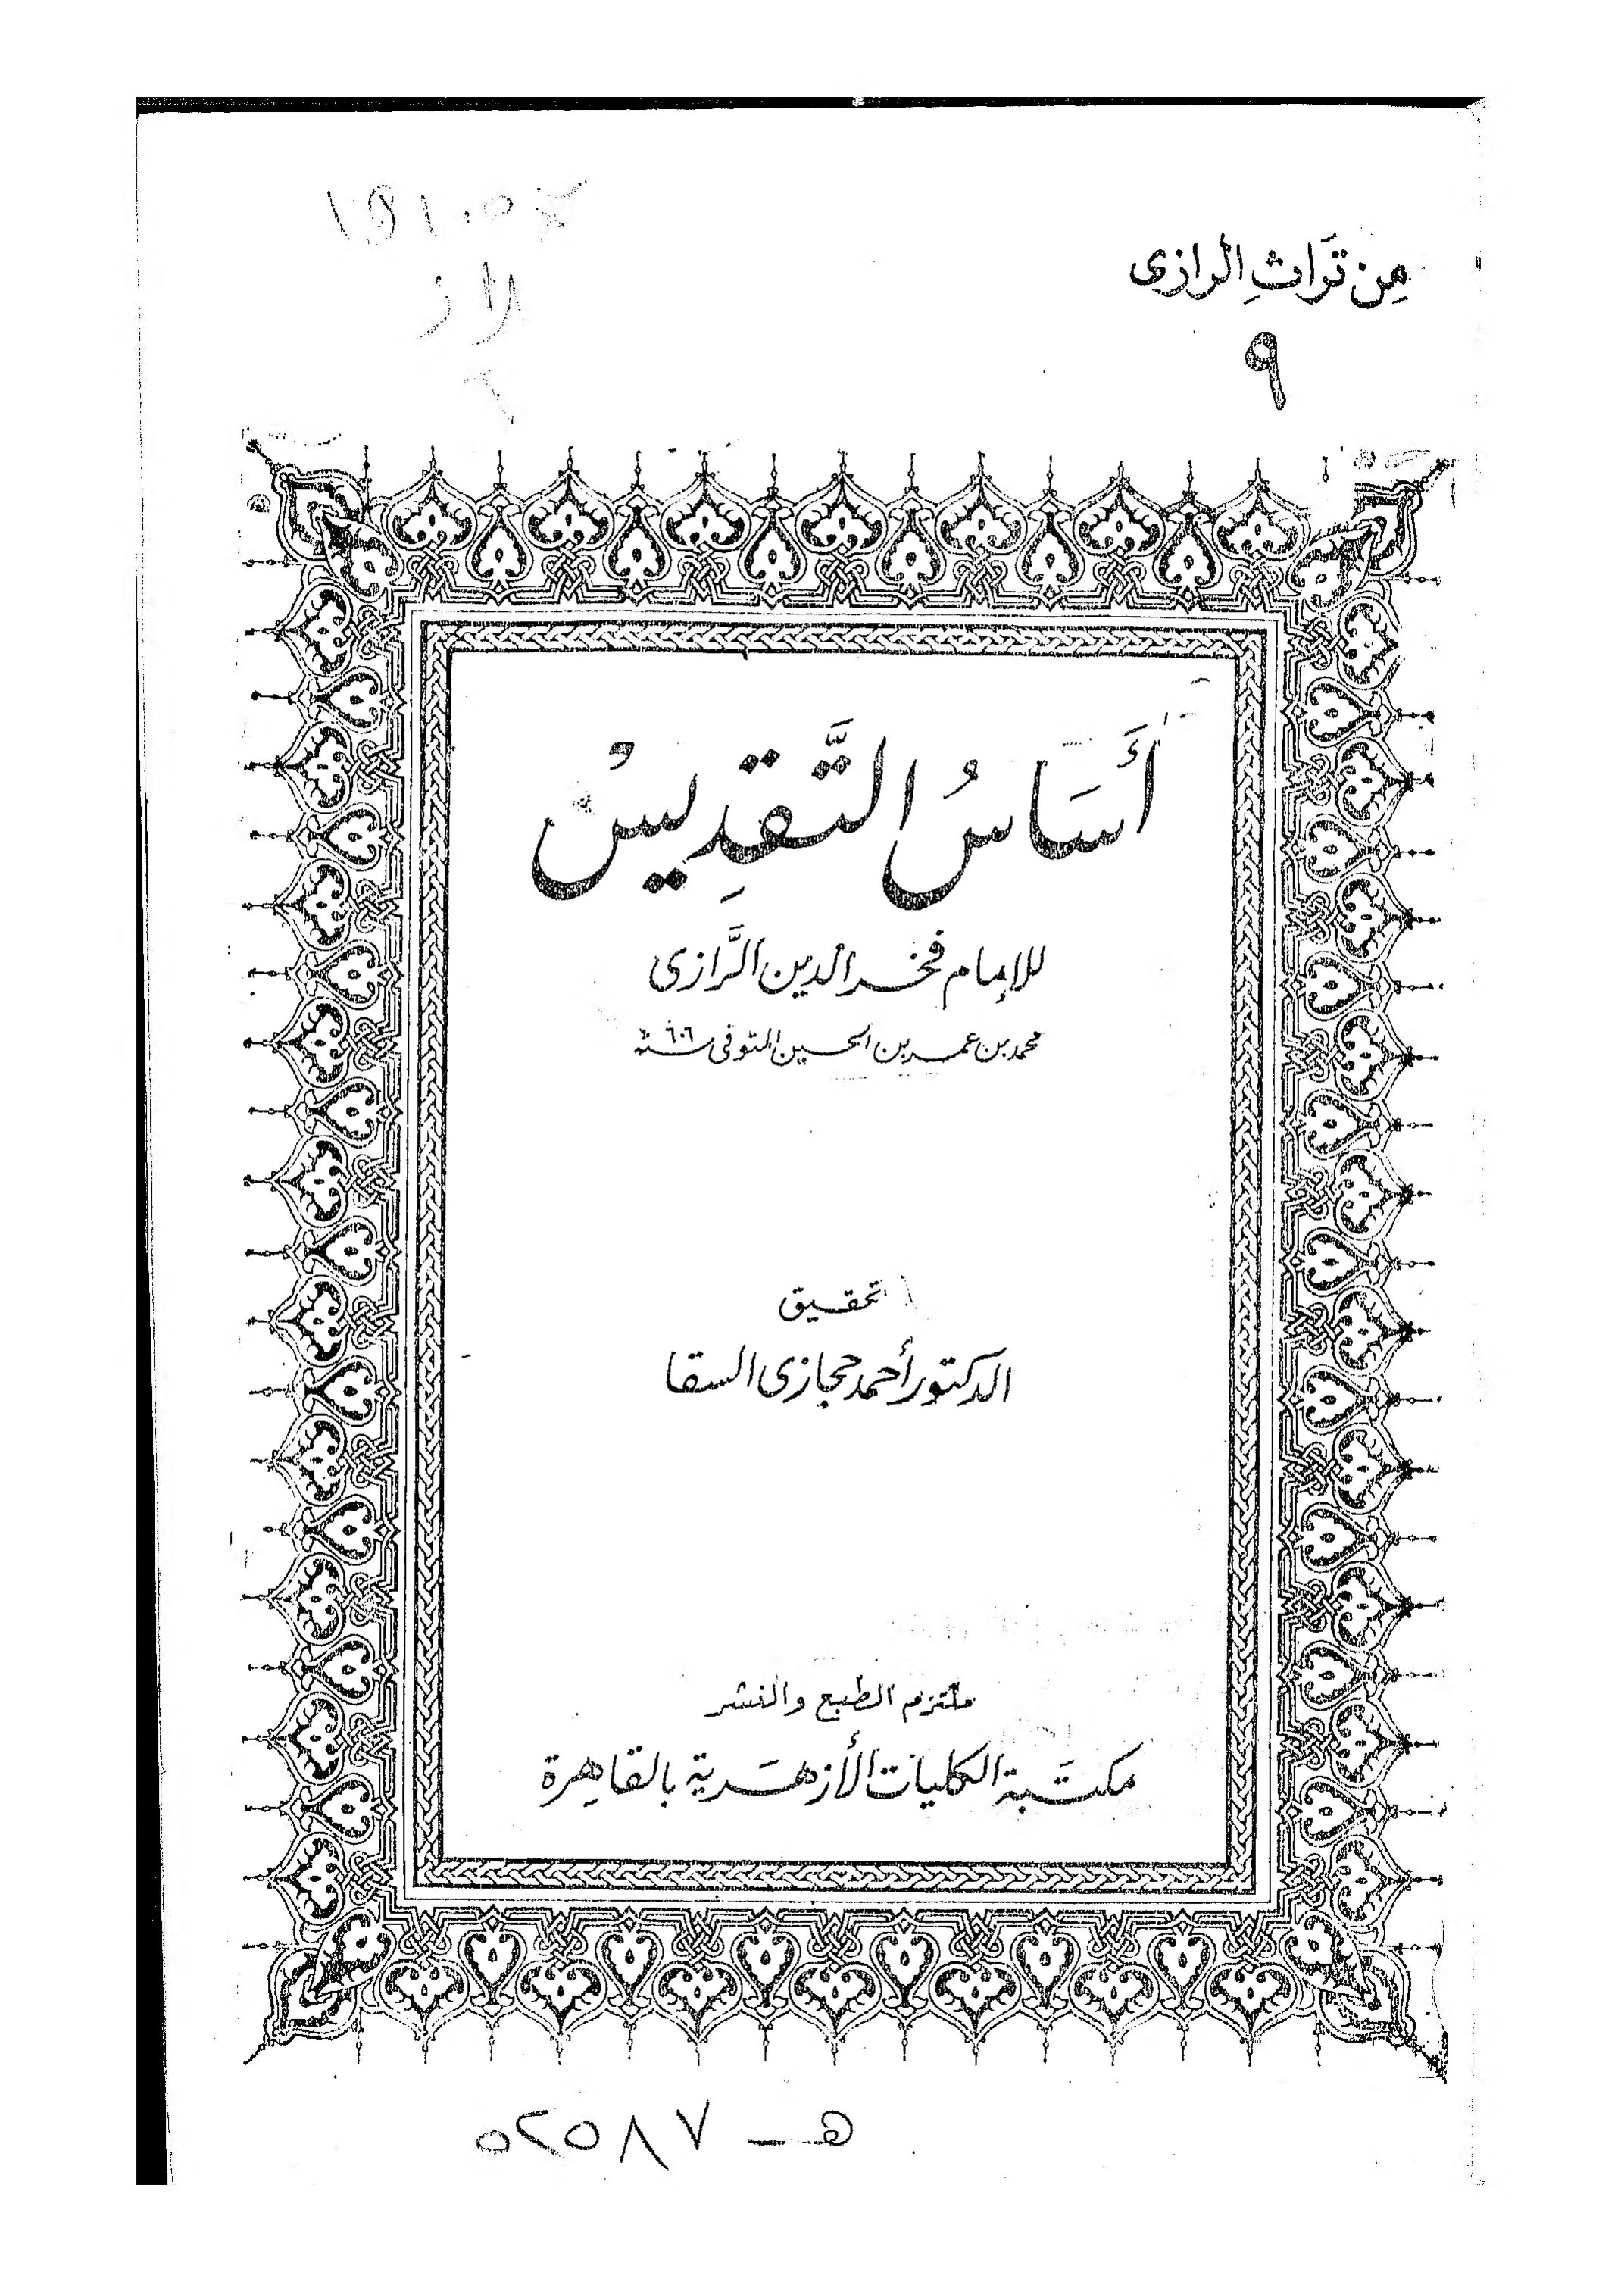 مِن تَراثِ الرازى
٩
أَسَاسُ التَّقدِيسْ
للإمام فخر الدين الرَّازى
محمد بن عمر بن الحسين المتوفى سنة ٦٠٦
تحقيق
الدكتور أحمد حجازى السقا
ملتزم الطبع والنشر
مكتَبة الكليات الأزهَرية بالقاهِرة